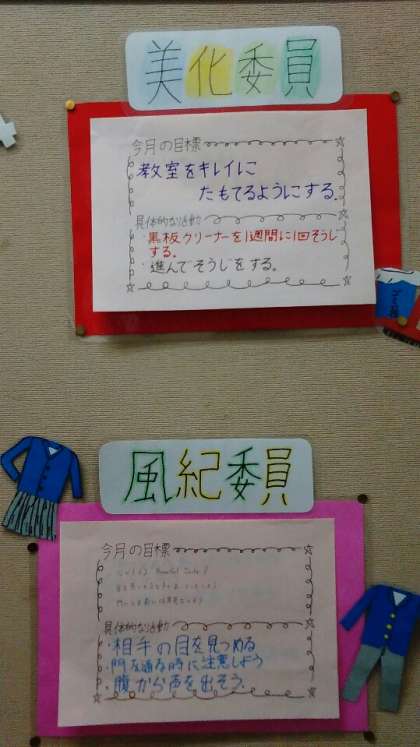 美化委員
今月の目標
教室をキレイに
たもてるようにする。
具体的な活動
・黒板クリーナーを1週間に1回そうじ
する。
・進んでそうじをする。
風紀委員
今月の目標
具体的な活動
・相手の目を見つめる
・門を通る時に注意しよう
・腹から声を出そう